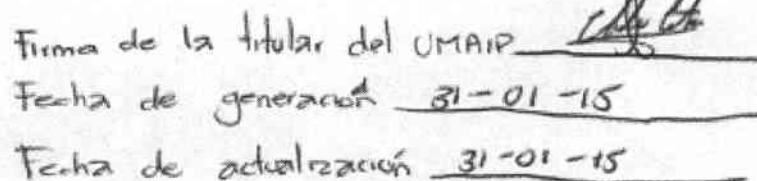 Firma de la titular del UMAIP
Fecha de generación 31-01-15
Fecha de actualización 31-01-15